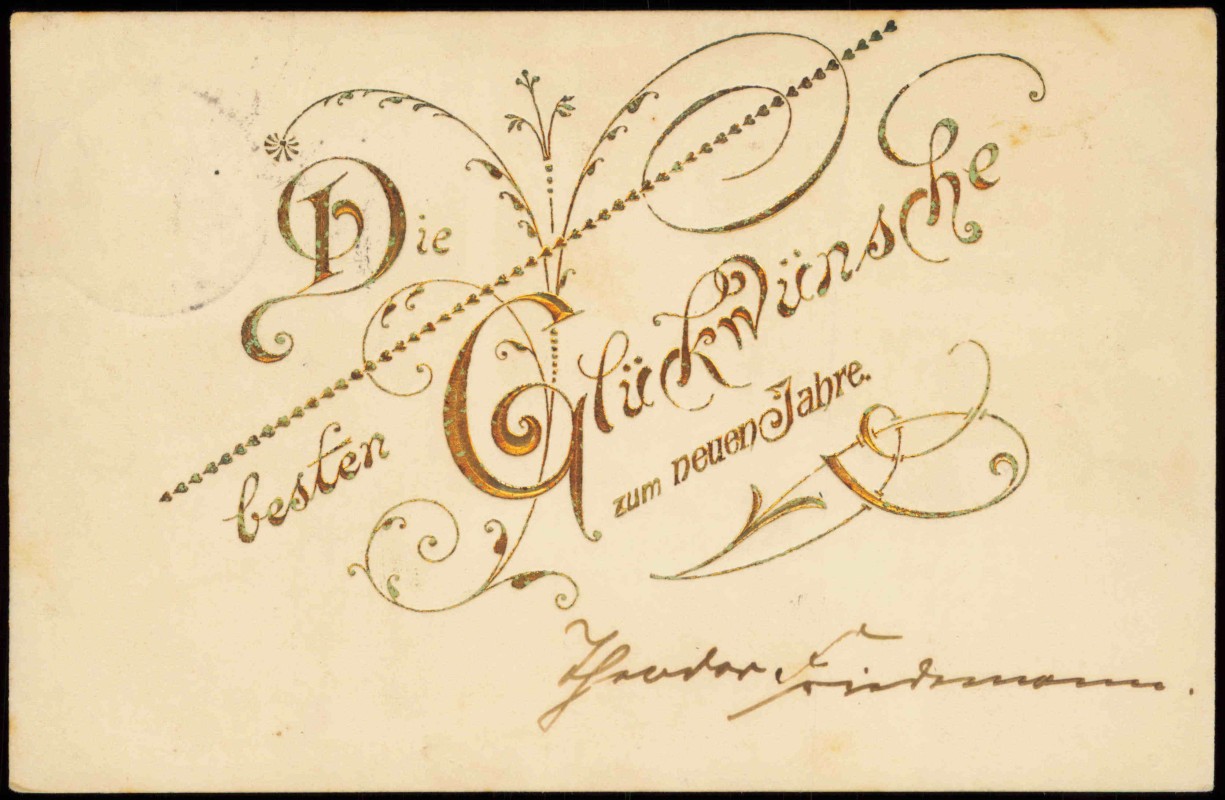 Die
besten
Glückwünsche
zum neuen Jahre.
Theodor Friedemann.